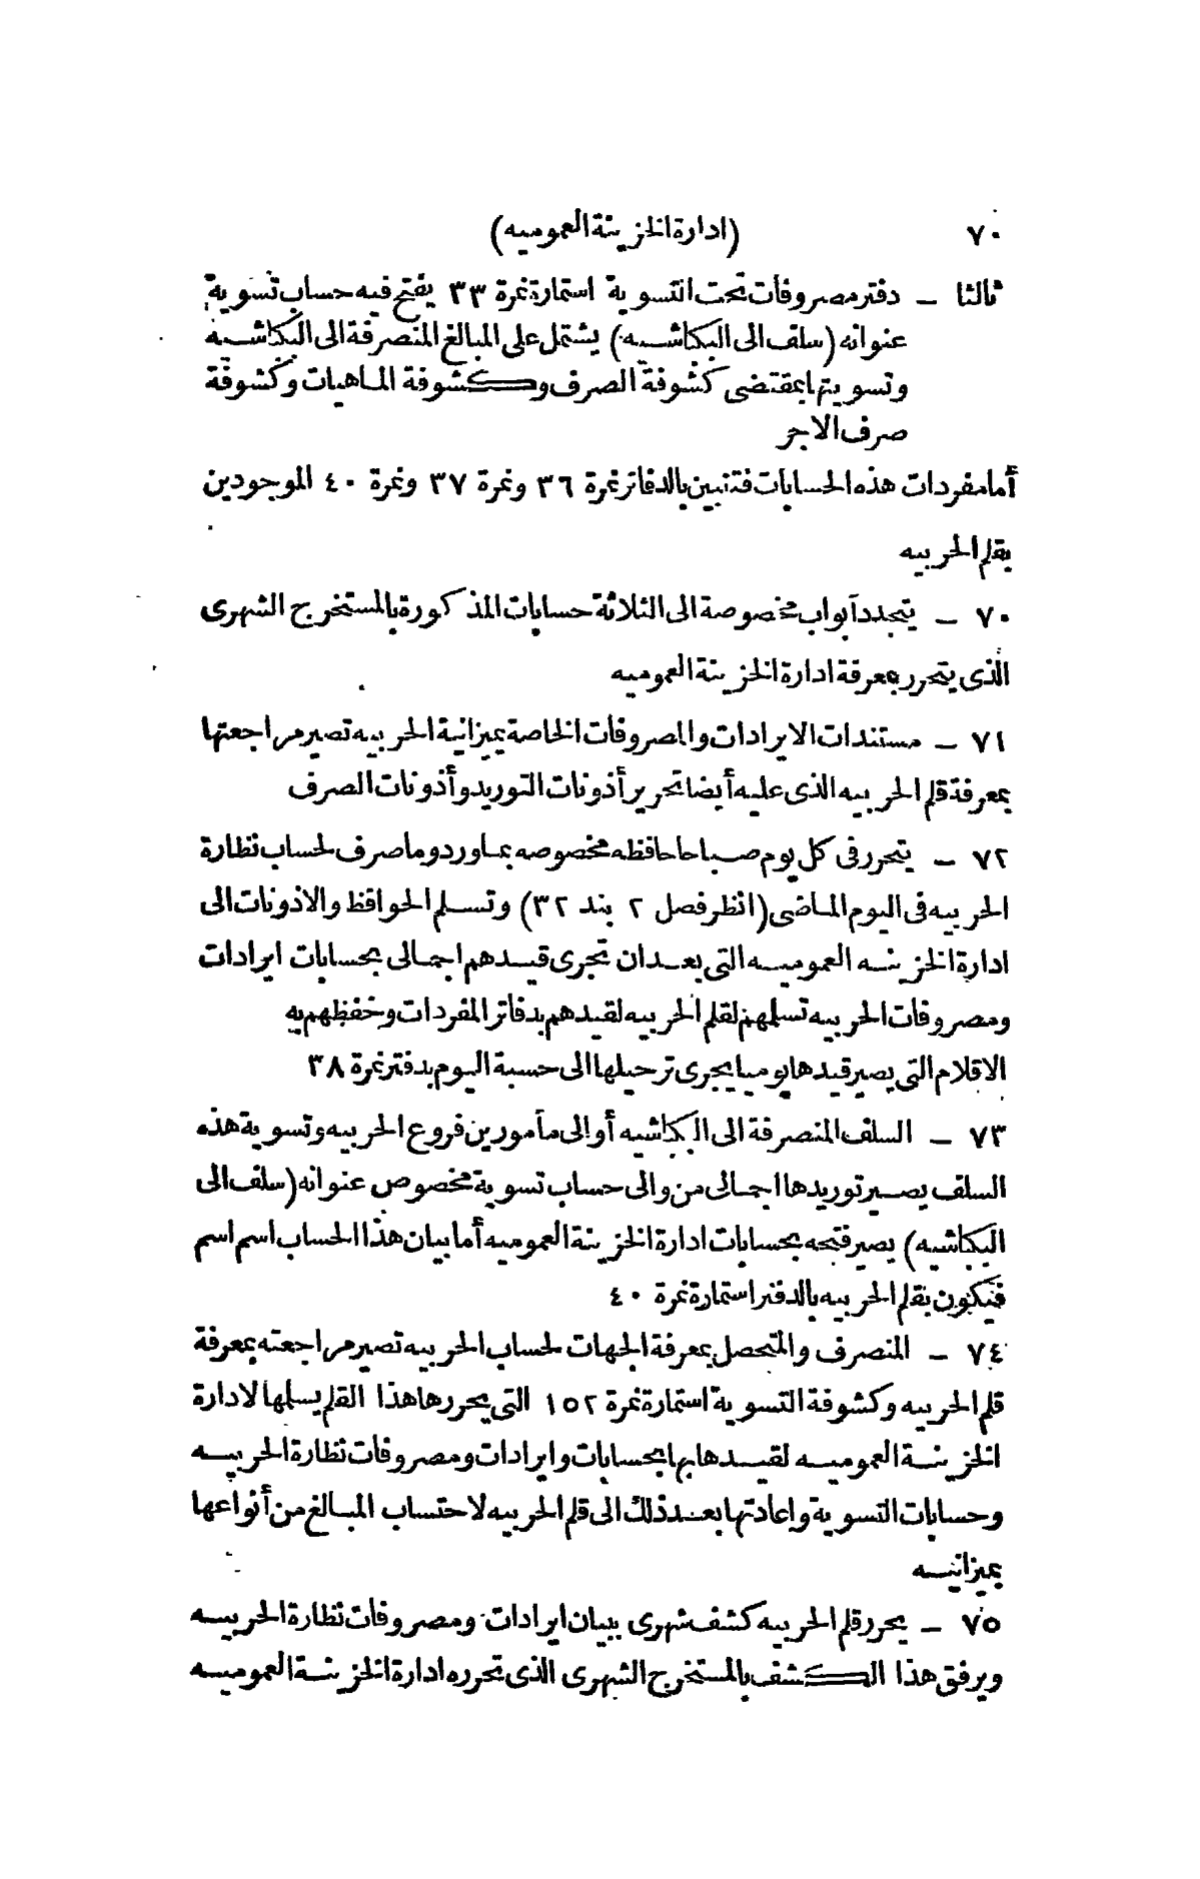 ٧٠ (ادارة الخزينة العموميه)
ثالثا — دفتر مصروفات تحت التسوية استمارة نمرة ٣٣ يفتح فيه حساب تسوية
عنوانه (سلف الى البكباشيه) يشتمل على المبالغ المنصرفة الى البكباشيه
وتسويتها بمقتضى كشوفة الصرف وكشوفة الماهيات وكشوفة
صرف الاجر
أما مفردات هذه الحسابات فتتبين بالدفاتر نمرة ٣٦ ونمرة ٣٧ ونمرة ٤٠ الموجودين
بقلم الحربيه
٧٠ — يتجدد أبواب مخصوصة الى الثلاثة حسابات المذكورة بالمستخرج الشهرى
الذى يتحرر بمعرفة ادارة الخزينة العموميه
٧١ — مستندات الايرادات والمصروفات الخاصة بميزانية الحربيه تصير مراجعتها
بمعرفة قلم الحربيه الذى عليه أيضا تحرير أذونات التوريد وأذونات الصرف
٧٢ — يتحرر فى كل يوم صباحا حافظه مخصوصه بما ورد وما صرف لحساب نظارة
الحربيه فى اليوم الماضى (انظر فصل ٢ بند ٣٢) وتسلم الحوافظ والاذونات الى
ادارة الخزينه العموميه التى بعد ان تجرى قيدهم اجمالى بحسابات ايرادات
ومصروفات الحربيه تسلمهم لقلم الحربيه لقيدهم بدفاتر المفردات وحفظهم به
الاقلام التى يصير قيدها يوميا يجرى ترحيلها الى حسبة اليوم بدفتر نمرة ٣٨
٧٣ — السلف المنصرفة الى البكباشيه أو الى مأمورين فروع الحربيه وتسوية هذه
السلف يصير توريدها اجمالى من والى حساب تسوية مخصوص عنوانه (سلف الى
البكباشيه) يصير فتحه بحسابات ادارة الخزينة العموميه أما بيان هذا الحساب اسم اسم
فيكون بقلم الحربيه بالدفتر استمارة نمرة ٤٠
٧٤ — المنصرف والمتحصل بمعرفة الجهات لحساب الحربيه تصير مراجعته بمعرفة
قلم الحربيه وكشوفة التسوية استمارة نمرة ١٥٢ التى يحررها هذا القلم يسلمها لادارة
الخزينة العموميه لقيدها بها بحسابات وايرادات ومصروفات نظارة الحربيه
وحسابات التسوية واعادتها بعد ذلك الى قلم الحربيه لاحتساب المبالغ من أنواعها
بميزانيه
٧٥ — يحرر قلم الحربيه كشف شهرى ببيان ايرادات ومصروفات نظارة الحربيه
ويرفق هذا الكشف بالمستخرج الشهرى الذى تحرره ادارة الخزينة العموميه